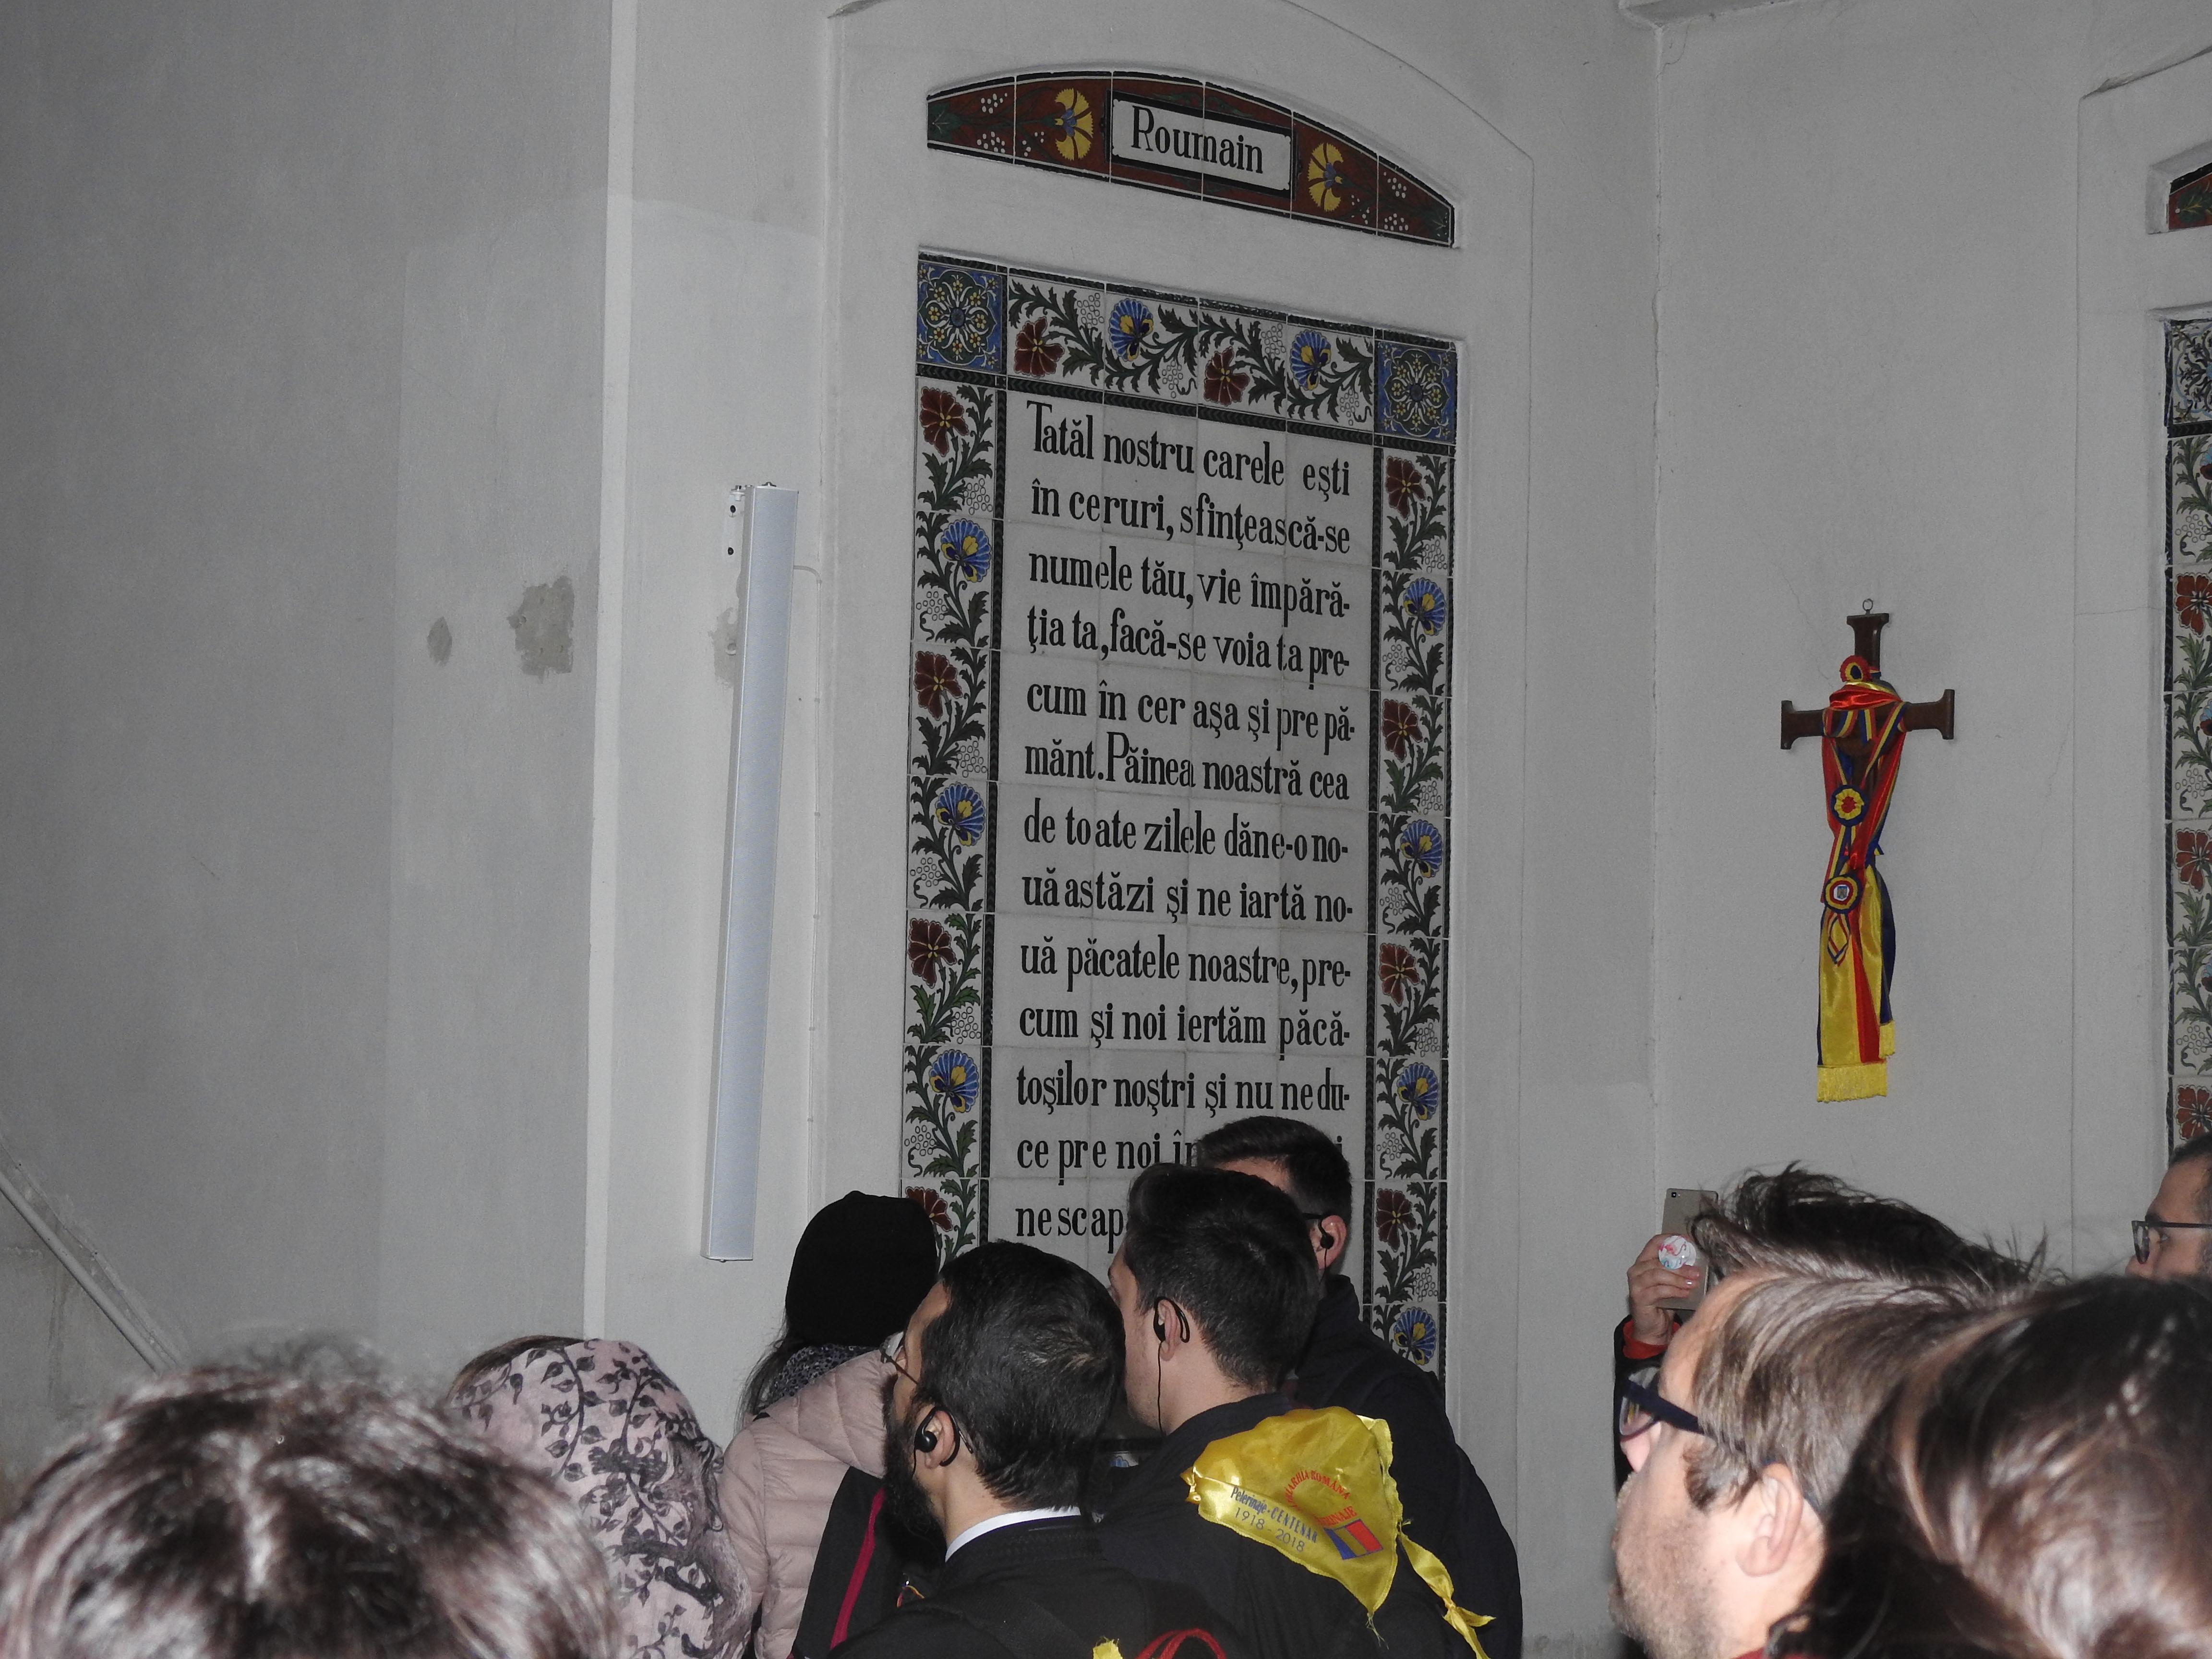 Roumain
Tatăl nostru carele eşti
în ceruri, sfinţească-se
numele tău, vie împără-
ţia ta, facă-se voia ta pre-
cum în cer aşa şi pre pă-
mănt. Păinea noastră cea
de toate zilele dăne-o no-
uă astăzi şi ne iartă no-
uă păcatele noastre, pre-
cum şi noi iertăm păcă-
toşilor noştri şi nu ne du-
ce pre noi
ROMÂNĂ
Pelerinaje - CENTENAR
1918 - 2018